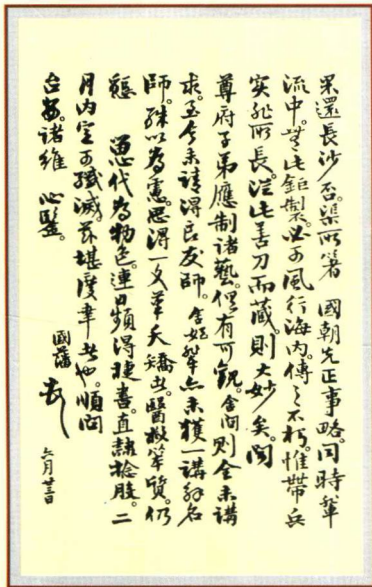 果還長沙否。渠所箸 國朝先正事略。同時輩
流中。無此鉅製。必可風行海內。傳之不朽。惟帶兵
实非所長。從此善刀而藏。則大妙矣。閱
尊府子弟應制諸藝。俱有可觀。舍間則全未講
求。至今未請得良友師。舍姪輩亦未獲一講解名
師。殊以為 思得一文筆夭矯 醫救笨質。仍
代為物色。連日頻得捷書。直隸捻股。二
月内定可殲滅 堪慶幸 也。順問
台安。諸維 心鑒。
國藩
六月廿三日